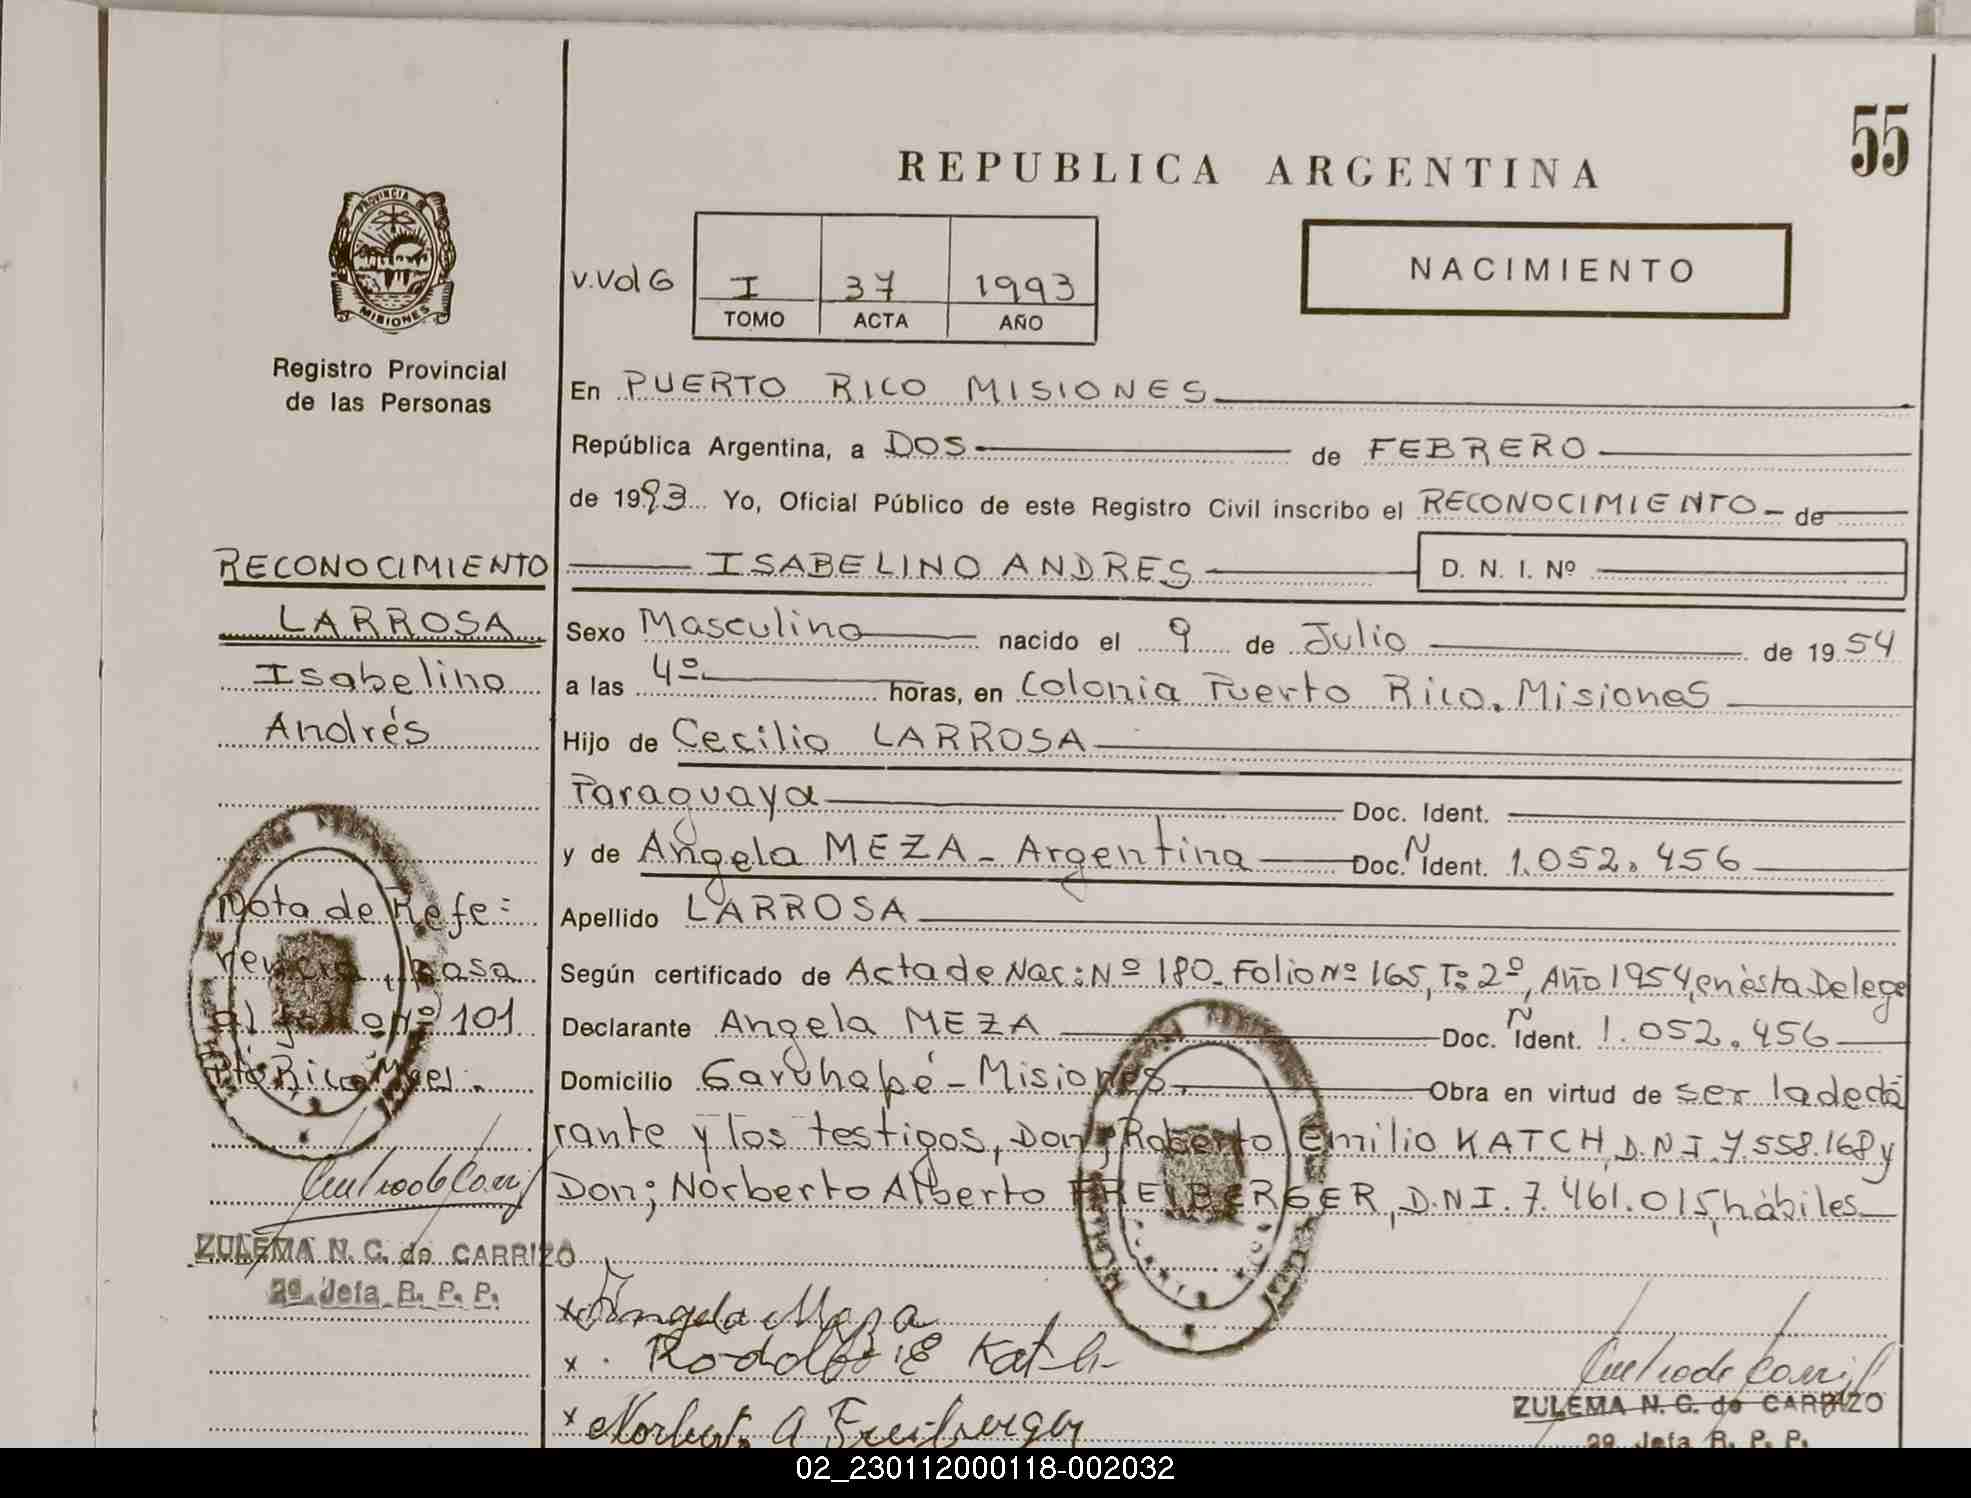 55
REPUBLICA ARGENTINA
PROVINCIA DE
MISIONES
Registro Provincial
de las Personas
V. Vol 6
I 37 1993
TOMO ACTA AÑO
NACIMIENTO
En PUERTO RICO MISIONES
República Argentina, a DOS de FEBRERO
de 1993 Yo, Oficial Público de este Registro Civil inscribo el RECONOCIMIENTO de
ISABELINO ANDRES D. N. I. Nº
Sexo Masculino nacido el 9 de Julio de 1954
a las 4º horas, en Colonia Puerto Rico. Misiones
Hijo de Cecilio LARROSA
Paraguaya Doc. Ident.
y de Angela MEZA - Argentina Doc. N Ident. 1.052.456
Apellido LARROSA
Según certificado de Acta de Nac: Nº 180 - Folio Nº 165, T: 2º, Año 1954, en ésta Delege
Declarante Angela MEZA Doc. N Ident. 1.052.456
Domicilio Garuhapé - Misiones. Obra en virtud de ser la decla
rante y los testigos, Don; Roberto Emilio KATCH, D.N.I. 7.558.168 y
Don; Norberto Alberto FREIBERGER, D.N.I. 7.461.015, hábiles
x Angela Meza
x Rodolfo E Katch
x Norberto A Freiberger
ZULEMA N. C. de CARRIZO
2º Jefa R. P. P.
RECONOCIMIENTO
LARROSA
Isabelino
Andrés
Nota de Refe:
rencia, pasa
al folio nº 101
Pto Rico Mnes.
ZULEMA N. C. de CARRIZO
2º Jefa R. P. P.
02_230112000118-002032